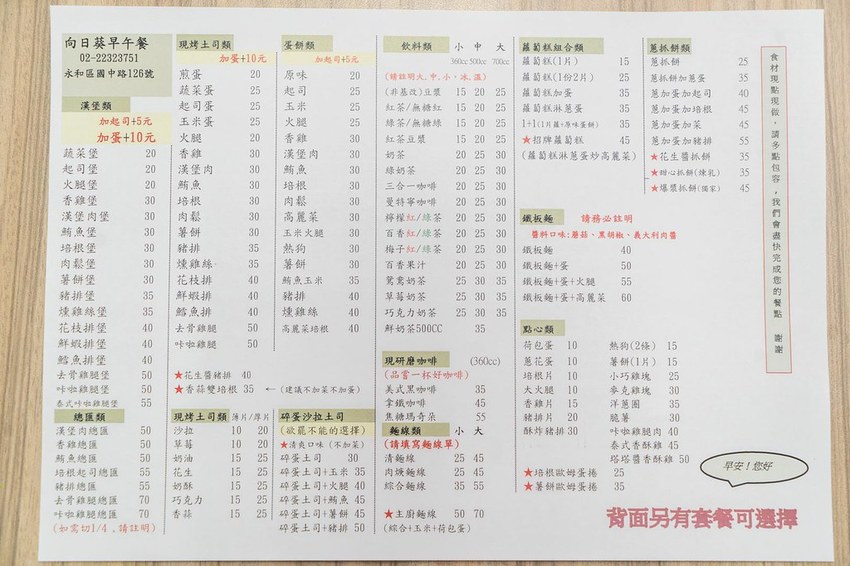 向日葵早午餐
02-22323751
永和區國中路126號
漢堡類
加起司+5元
加蛋+10元
蔬菜堡 20
起司堡 25
火腿堡 25
香雞堡 30
漢堡肉堡 30
鮪魚堡 30
培根堡 30
肉鬆堡 30
薯餅堡 30
豬排堡 35
燻雞絲堡 35
花枝排堡 40
鮮蝦排堡 40
鱈魚排堡 40
去骨雞腿堡 50
咔啦雞腿堡 50
泰式咔啦雞腿堡 55
總匯類
漢堡肉總匯 50
香雞總匯 50
鮪魚總匯 50
培根起司總匯 55
豬排總匯 55
去骨雞腿總匯 70
咔啦雞腿總匯 70
(如需切1/4，請註明)
現烤土司類
加蛋+10元
煎蛋 20
蔬菜蛋 25
起司蛋 25
玉米蛋 25
火腿 20
香雞 30
漢堡肉 30
鮪魚 30
培根 30
肉鬆 30
薯餅 30
豬排 35
燻雞絲 35
花枝排 40
鮮蝦排 40
鱈魚排 40
去骨雞腿 50
咔啦雞腿 50
★花生醬豬排 40
★香蒜雙培根 35 ←(建議不加菜不加蛋)
現烤土司類 薄片/厚片
沙拉 10 20
草莓 10 20
奶油 15 25
花生 15 25
奶酥 15 25
巧克力 15 25
香蒜 15 25
蛋餅類
加起司+5元
原味 20
起司 25
玉米 25
火腿 25
香雞 30
漢堡肉 30
鮪魚 30
培根 30
肉鬆 30
高麗菜 30
玉米火腿 30
熱狗 30
薯餅 30
鮪魚玉米 35
豬排 40
燻雞絲 40
高麗菜培根 40
碎蛋沙拉土司
(欲罷不能的選擇)
★清爽口味 (不加菜)
碎蛋土司 30
碎蛋土司+玉米 35
碎蛋土司+火腿 40
碎蛋土司+鮪魚 45
碎蛋土司+薯餅 45
碎蛋土司+豬排 50
飲料類 小 中 大
360cc 500cc 700cc
(請註明大.中.小，冰.溫)
(非基改)豆漿 15 20 25
紅茶/無糖紅 15 20 25
綠茶/無糖綠 15 20 25
紅茶豆漿 15 20 25
奶茶 20 25 30
綠奶茶 20 25 30
三合一咖啡 20 25 30
曼特寧咖啡 20 25 30
檸檬紅/綠茶 20 25 30
百香紅/綠茶 20 25 30
梅子紅/綠茶 20 25 30
百香果汁 20 25 30
鴛鴦奶茶 25 30 35
草莓奶茶 25 30 35
巧克力奶茶 25 30 35
鮮奶茶500CC 35
現研磨咖啡 (360cc)
(品嘗一杯好咖啡)
美式黑咖啡 35
拿鐵咖啡 45
焦糖瑪奇朵 55
麵線類 小 大
(請填寫麵線單)
清麵線 25 45
肉焿麵線 25 45
綜合麵線 35 55
★主廚麵線 50 70
(綜合+玉米+荷包蛋)
蘿蔔糕組合類
蘿蔔糕(1片) 15
蘿蔔糕(1份2片) 25
蘿蔔糕加蛋 35
蘿蔔糕淋蔥蛋 35
1+1(1片蘿+原味蛋餅) 35
★招牌蘿蔔糕 45
(蘿蔔糕淋蔥蛋炒高麗菜)
蔥抓餅類
蔥抓餅 25
蔥抓餅加蔥蛋 35
蔥加蛋加起司 40
蔥加蛋加培根 45
蔥加蛋加菜 45
蔥加蛋加豬排 55
★花生醬抓餅 35
★甜心抓餅(煉乳) 35
★爆漿抓餅(獨家) 45
鐵板麵 請務必註明
醬料口味:蘑菇、黑胡椒、義大利肉醬
鐵板麵 40
鐵板麵+蛋 50
鐵板麵+蛋+火腿 55
鐵板麵+蛋+高麗菜 60
點心類
荷包蛋 10
蔥花蛋 10
培根片 10
大火腿 10
香雞片 15
豬排片 20
酥炸豬排 30
熱狗(2條) 15
薯餅(1片) 15
小巧雞塊 25
麥克雞塊 30
洋蔥圈 35
脆薯 30
咔啦雞腿肉 40
泰式香酥雞 45
塔塔醬香酥雞 50
★培根歐姆蛋捲 25
★薯餅歐姆蛋捲 35
食材現點現做，請多點包容，我們會盡快完成您的餐點 謝謝
早安！您好
背面另有套餐可選擇